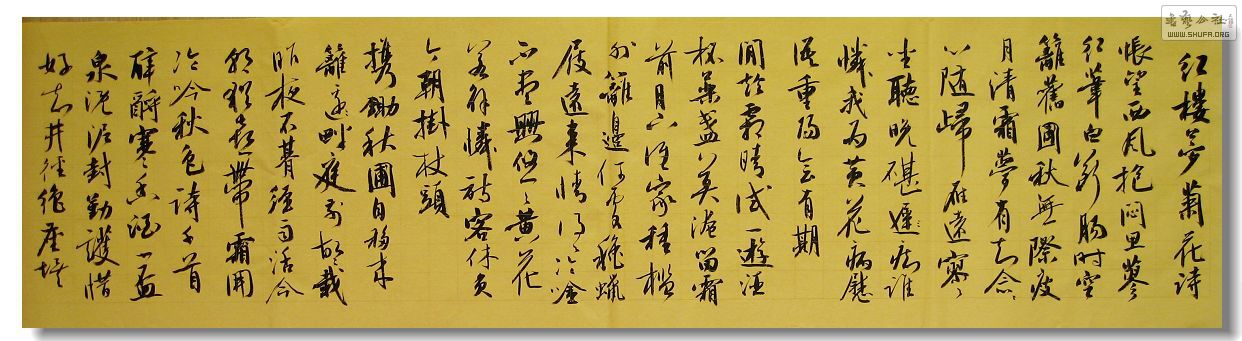 紅樓夢菊花詩
悵望西風抱悶思蓼
紅葦白斷腸時空
籬舊圃秋無際瘦
月清霜夢有知念念
心随歸雁遠寥寥
坐聽晚砧痴誰
憐我為黃花病慰
語重陽會有期
閒趁霜晴試一遊酒
杯藥盞莫淹留霜
前月下誰家種檻
外籬邊何處秋蠟
屐遠來情得得冷吟
不盡興悠悠黃花
若解憐詩客休負
今朝掛杖頭
携鋤秋圃自移來
籬畔庭前故栽
昨夜不期經雨活今
朝猶喜帶霜開
冷吟秋色詩千首
醉酹寒香酒一盃
泉溉泥封勤護惜
好知井徑絕塵埃
書藝公社
WWW.SHUFA.ORG